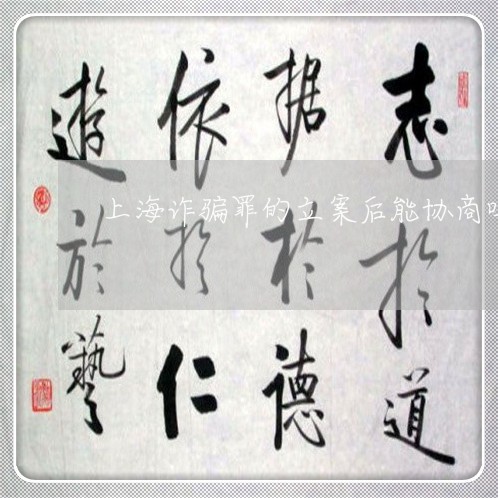 志扵道
据扵德
依扵仁
遊於藝
上海诈骗罪的立案后能协商